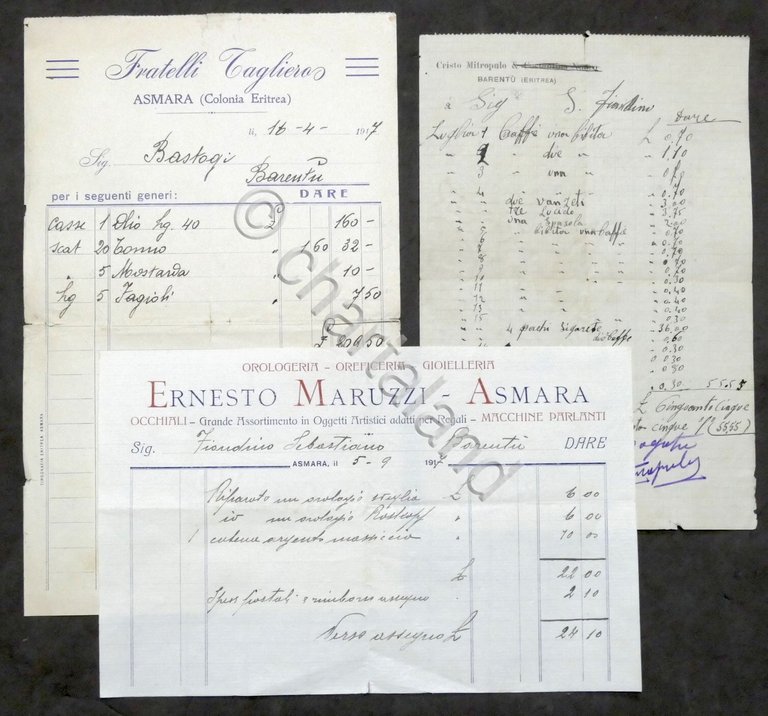 Fratelli Tagliero
ASMARA (Colonia Eritrea)
li, 16-4- 1917
Sig. Bastogi
Barentù
per i seguenti generi: DARE
casse 1 Olio Kg. 40 £ 160 -
scat 20 Tonno " 1,60 32 -
" 5 Mostarda " 10 -
Kg 5 Fagioli " 7 50
£ 209.50
Cristo Mitropulo & Costantino
BARENTÙ (ERITREA)
a Sig S. Fiandino
Dare
Luglio 1 Caffe una bibita £ 0,70
" 2 " due " 1,10
" 3 " una "
" 4 " " 0.70
due 3.00
tre Lucido 3,75
una Spazola 2.00
" 5 bibita una Caffe 0.70
" 6 " " 0.70
" 7
" 8
" 9
" 10
" 11
" 12
" 13
" 15 0.30
4 pachi sigarete 36,00
due Caffe 0.60
0.30
0.30 55.55
£ Cinquanta Cinque
cinque (55,55)
OROLOGERIA - OREFICERIA - GIOIELLERIA
ERNESTO MARUZZI - ASMARA
OCCHIALI - Grande Assortimento in Oggetti Artistici adatti per Regali - MACCHINE PARLANTI
Sig. Fiandino Sebastiano Barentù DARE
ASMARA, li 5-9 191
Riparato un orologio sveglia £ 6 00
id un orologio Roskopf " 6 00
1 catena argento massiccio " 10 00
£ 22 00
Spese postali e rimborso assegno 2 10
Verso assegno £ 24 10
© chartaland